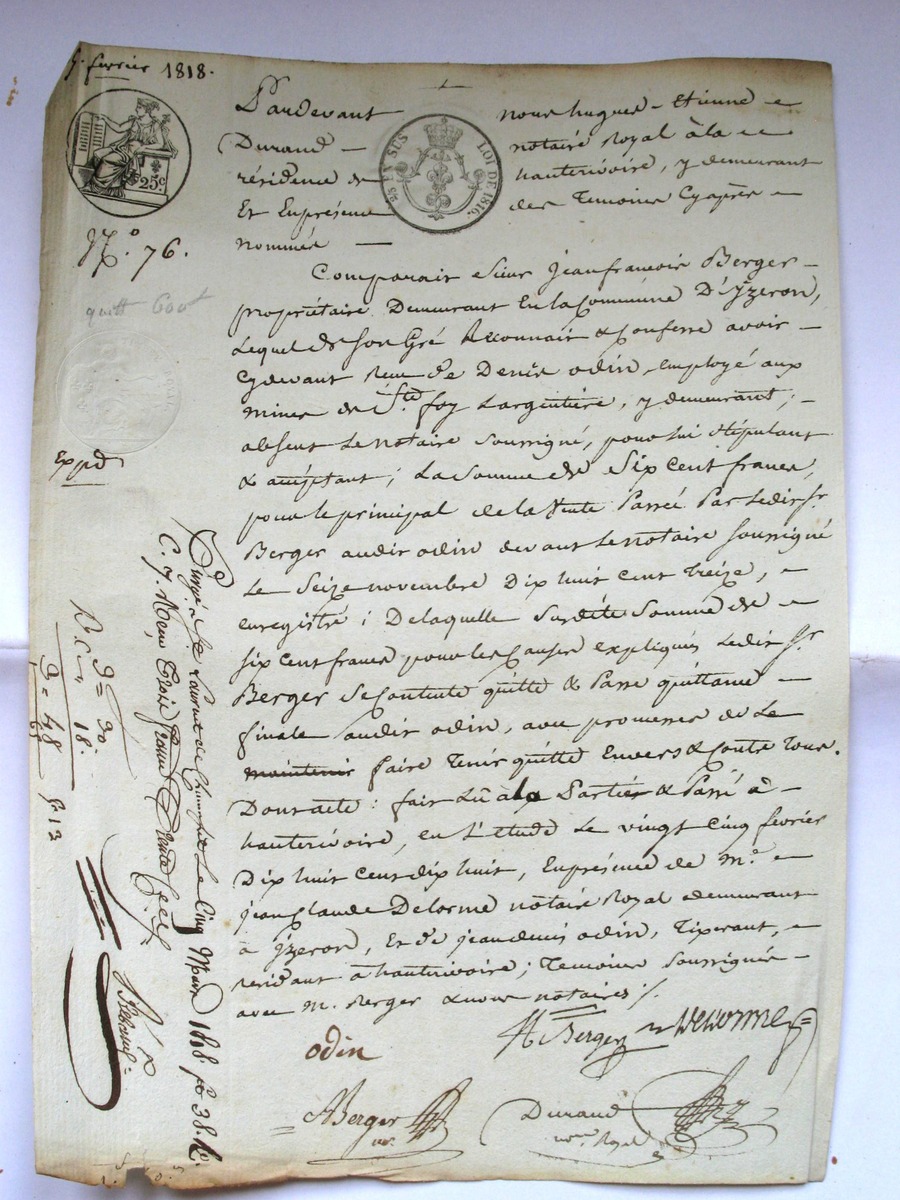 février 1818.
25 EN SUS LOI DE 1816.
25c
N.o 76.
quitt 600
Expd
Pardevant nous hugues - Etienne
Durand - notaire Royal à la
résidence de hauterivoire, y demeurant
Et Enprésence des Temoins Cyaprès -
nommés -
Comparait Sieur Jeanfrancois Berger -
propriétaire Demeurant Enla Commune D'Yzeron,
Lequel de Son Gré Reconnait & Confesse avoir -
Cydevant Reçu de Denis odin, employé aux
mines de Ste foy Largentière, y demeurant ; -
absent Le notaire Soussigné, pour lui Stipulant
& acceptant ; La Somme de Six Cent francs,
pour le principal de la Vente Passée Par Ledit Sr
Berger audit odin devant Le notaire Soussigné
Le Seize novembre Dix huit cent Treize, -
enregistré ; De laquelle Susdite Somme de -
Six Cent francs pour les Causes expliqués Ledit Sr
Berger Se Contente quitte & Passe quittance -
finale audit odin, avec promesses de Le
maintenir faire Tenir quitte Envers & Contre Tous.
Dont acte : fait Lû à la Parties & Passé à -
hauterivoire, en L'étude Le vingt Cinq février
Dix huit Cent dix huit, Enprésence de M.e -
Jean Claude Delorme notaire Royal demeurant
à Yzeron, Et de jean denis odin, Tixerant, -
résidant à hauterivoire ; Temoins Soussignés -
avec M. Berger & nous notaires /.
odin
Berger
Delorme
Berger
Durand
nore Royal
St Laurent de Chamousset Le Cinq Mars 1818. fo 38. Ro.
C. 7. Reçu Trois francs Trente
3 = 30
18.
3 = 48